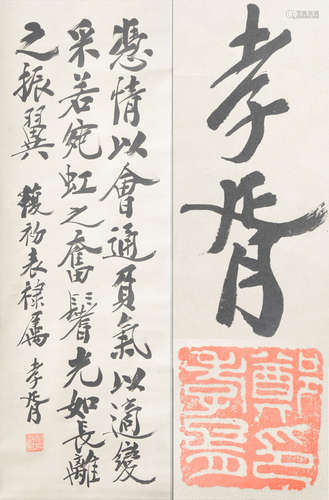 憑情以會通負氣以適變
采若宛虹之奮鬐光如長離
之振翼
初表屬 孝胥
孝胥
鄭印
孝胥